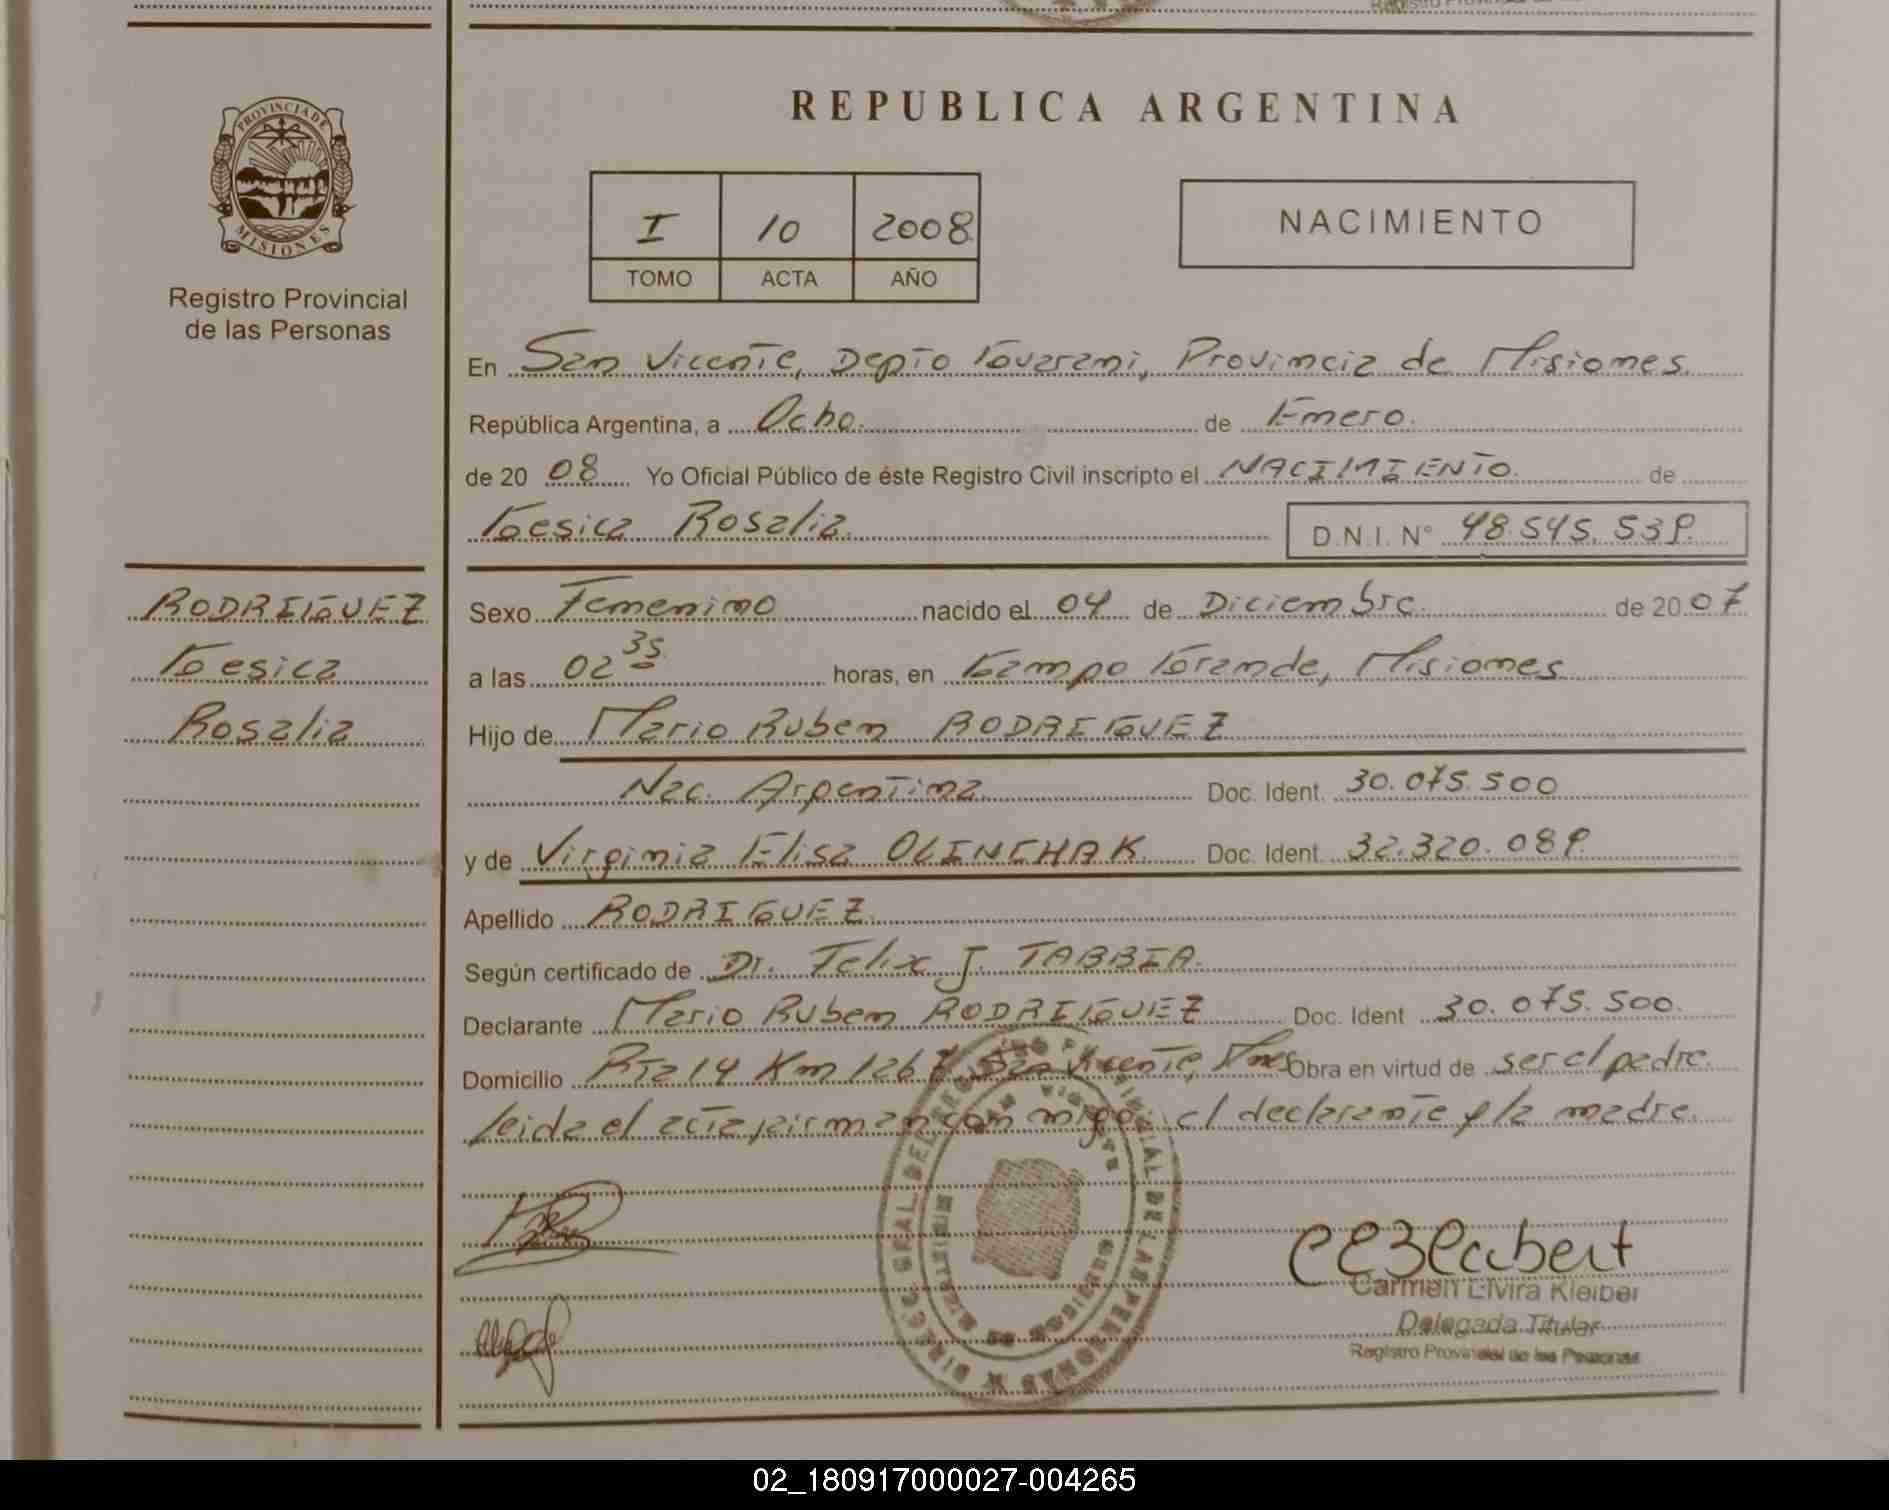 REPUBLICA ARGENTINA
PROVINCIA DE
MISIONES
Registro Provincial
de las Personas
I 10 2008
TOMO ACTA AÑO
NACIMIENTO
En San Vicente, Depto Guarani, Provincia de Misiones
República Argentina, a Ocho. de Enero.
de 20 08 Yo Oficial Público de éste Registro Civil inscripto el NACIMIENTO. de
Gesica Rosalia. D.N.I. N° 48.545.539.
RODRIGUEZ
Gesica
Rosalia
Sexo Femenino nacido el 04 de Diciembre. de 20 07
a las 02 35 horas, en Campo Grande, Misiones
Hijo de Mario Ruben RODRIGUEZ
Nac. Argentina Doc. Ident. 30.075.500
y de Virginia Elisa OLINCHAK. Doc. Ident. 32.320.089.
Apellido RODRIGUEZ.
Según certificado de Dr. Felix J. TABBIA.
Declarante Mario Ruben RODRIGUEZ Doc. Ident 30.075.500.
Domicilio Rta 14 Km 1267 San Vicente, Mnes Obra en virtud de ser el padre.
leida el acta, firman con migo: el declarante y la madre.
Carmen Elvira Kleiber
Delegada Titular
Registro Provincial de las Personas
02_180917000027-004265